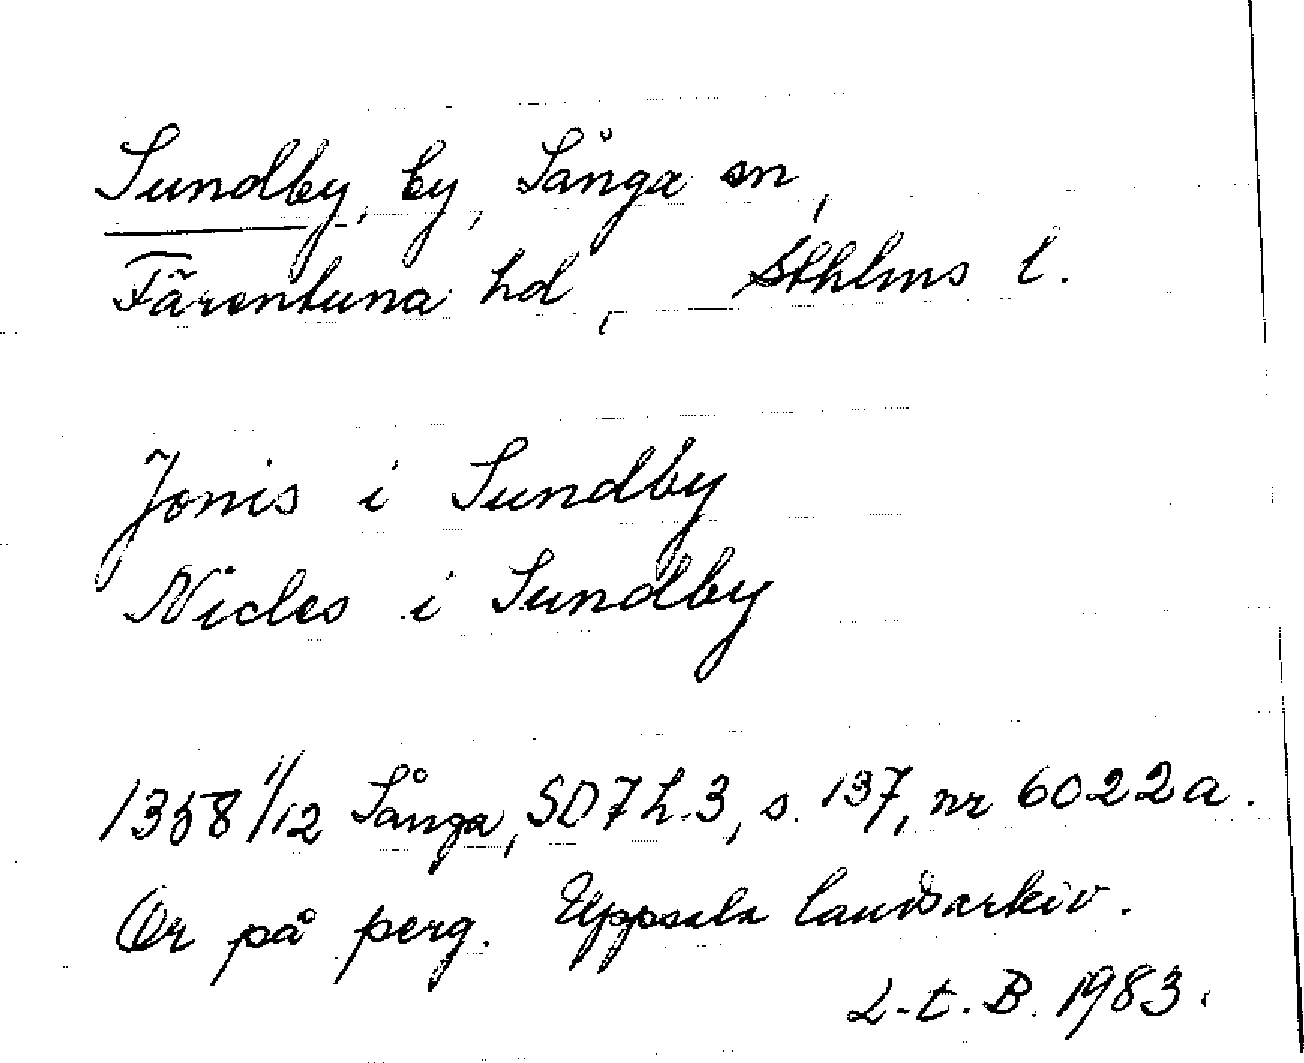 Sundby, by, Sånga sn,
Färentuna hd, Sthlms l.
Jonis i Sundby
Nicles i Sundby
1358 1/12 Sånga, SD 7 h. 3, s. 137, nr 6022a.
Or på perg. Uppsala landsarkiv.
L. t. B. 1983.